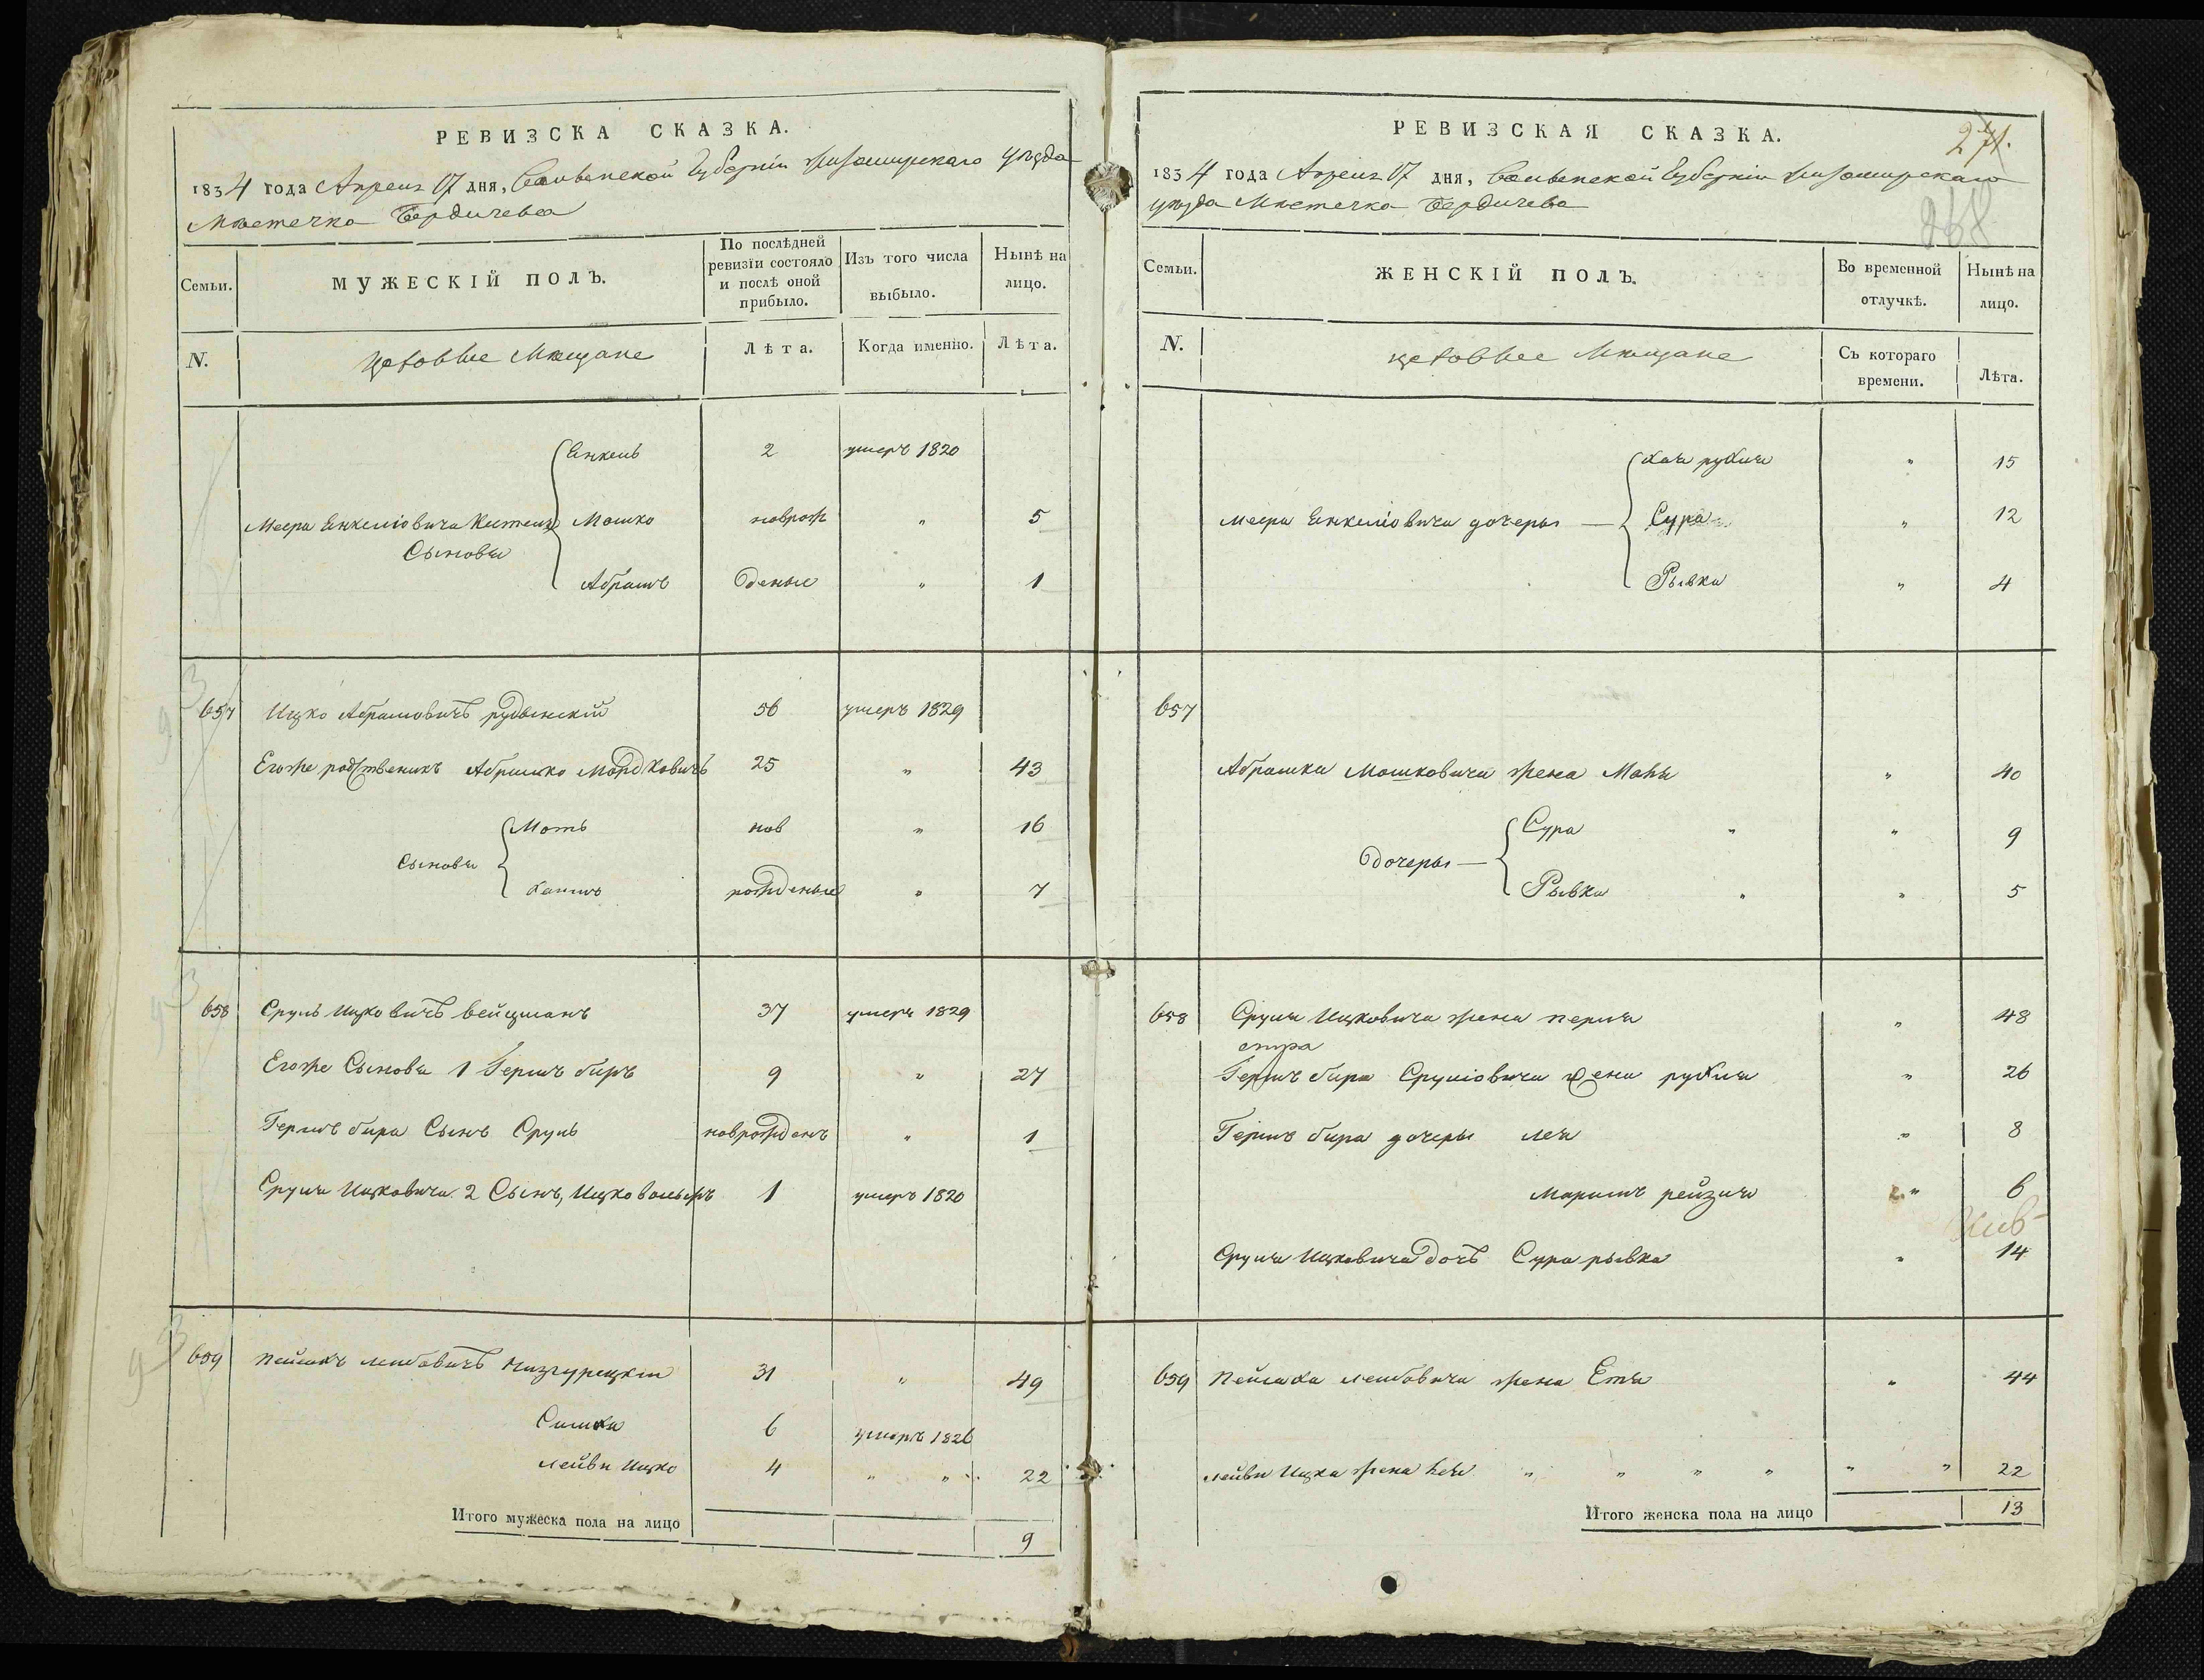 РЕВИЗСКА СКАЗКА.
1834 года Апреля 17 дня, Волынской Губерніи Житомирскаго уѣзда
Мѣстечка Бердичева
Семьи.
МУЖЕСКІЙ ПОЛЪ.
По послѣдней ревизіи состояло и послѣ оной прибыло.
Изъ того числа выбыло.
Нынѣ на лицо.
N.
цеховые Мѣщане
Лѣта.
Когда именно.
Лѣта.
Енкель 2 умеръ 1820
Меера Енкеліовича Мошко новрож " 5
Сыновья
Абрамъ деные " 1
657 Ицко Абрамовичъ рудынскій 56 умеръ 1829
Егоже родственикъ Абрамко Мордковичъ 25 " 43
Моть нов " 16
Сыновья
Хаимъ рожденые " 7
658 Сруль Ицковичъ вейцманъ 37 умеръ 1829
Егоже Сыновья 1 Гершъ беръ 9 " 27
Гершъ бера Сынъ Сруль новрожденъ " 1
Сруля Ицковича 2 Сынъ, Ицко 1 умеръ 1820
659 Пейсахъ лейбовичъ 31 " 49
Симха 6 умеръ 1826
лейви Ицко 4 " " 22
Итого мужеска пола на лицо 9
РЕВИЗСКАЯ СКАЗКА.
271.
1834 года Апреля 17 дня, Волынской Губерніи Житомирскаго
уѣзда Мѣстечка Бердичева
268
Семьи.
ЖЕНСКІЙ ПОЛЪ.
Во временной отлучкѣ.
Нынѣ на лицо.
N.
цеховые Мѣщане
Съ котораго времени.
Лѣта.
Хая рухля " 15
меера Енкеліовича дочеры — Сура " 12
Рывка " 4
657
Абрамка Мошковича жена " 40
Сура " " 9
дочеры —
Рывка " " 5
658 Сруля Ицковича жена перля " 48
Гершъ бера Сруліовича жена рухля " 26
Гершъ бера дочеры лея " 8
Маришъ рейзля " 6
Сруля Ицковича дочъ Сура рывка " 14
659 Пейсаха лейбовича жена Етя " 44
лейви Ицка жена " " " " " " 22
Итого женска пола на лицо 13